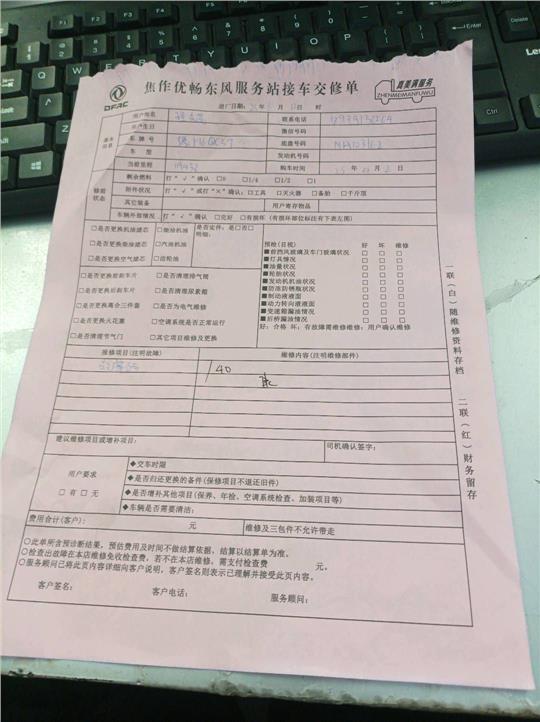 焦作优畅东风服务站接车交修单
DFAC
真美满服务
ZHENMEIMANFUWU
进厂日期: 年 月 日 时
基本信息
用户姓名
联系电话
用户生日
微信号码
车牌号
底盘号码
车型
发动机号码
当前里程
购车时间
年 月 日
修前状态
剩余燃料 打"√"确认 □0 □1/4 □1/2 □1
附件状况 打"√"或打"×"确认:□工具 □灭火器 □备胎 □千斤顶
其它装备
用户寄存物品
车辆外部情况 打"√"确认 □完好 □有损坏 (有损坏部位标注有下表左图)
□是否更换机油滤芯 □柴油机油 是否定件:□是□否
□是否更换柴油滤芯 □汽油机油 明细:
□是否更换空气滤芯 □齿轮油
□是否更换前刹车片 □是否清理排气筒
□是否更换后刹车片 □是否清理尿素箱
□是否更换离合三件套 □是否为电气维修
□是否更换火花塞 □空调系统是否正常运行
□是否清理节气门 □其它项目维修及更换
预检(目视) 好 坏 维修
■前挡风玻璃及车门玻璃状况 □ □ □
■灯具情况 □ □ □
■油量状况 □ □ □
■轮胎状况 □ □ □
■发动机机油状况 □ □ □
■防冻防锈瓶状况 □ □ □
■制动液液面 □ □ □
■动力转向液液面 □ □ □
■变速箱漏油情况 □ □ □
■后桥漏油情况 □ □ □
好:合格 坏:有故障需维修维修:用户确认维修
报修项目(注明故障)
维修内容(注明维修部件)
40
建议维修项目或增补项目:
司机确认签字:
用户要求
□有 □无
◆交车时限
◆是否归还更换的备件(保修项目不退还旧件)
◆是否增补其他项目(保养、年检、空调系统检查、加装项目等)
◆车辆是否需要清洁:
费用合计(客户): 元
维修及三包件不允许带走
○此单所含预诊断结果,预估费用及时间不做结算依据,结算以结算单为准。
○检查出故障在本店维修免收检查费,若不在本店维修,需支付检查费 元。
○服务顾问已将此页内容详细向客户说明,客户签名则表示已理解并接受此页内容。
客户签名: 客户电话: 服务顾问:
一联(白)随维修资料存档
二联(红)财务留存